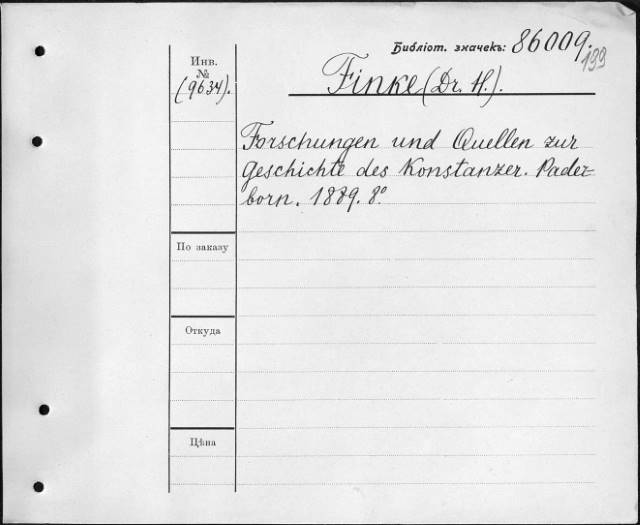 Библіот. значекъ: 86009.
199
Инв.
№
(9634).
Finke (Dr. H.).
Forschungen und Quellen zur
Geschichte des Konstanzer. Pader=
born. 1889. 8º
По заказу
Откуда
Цѣна